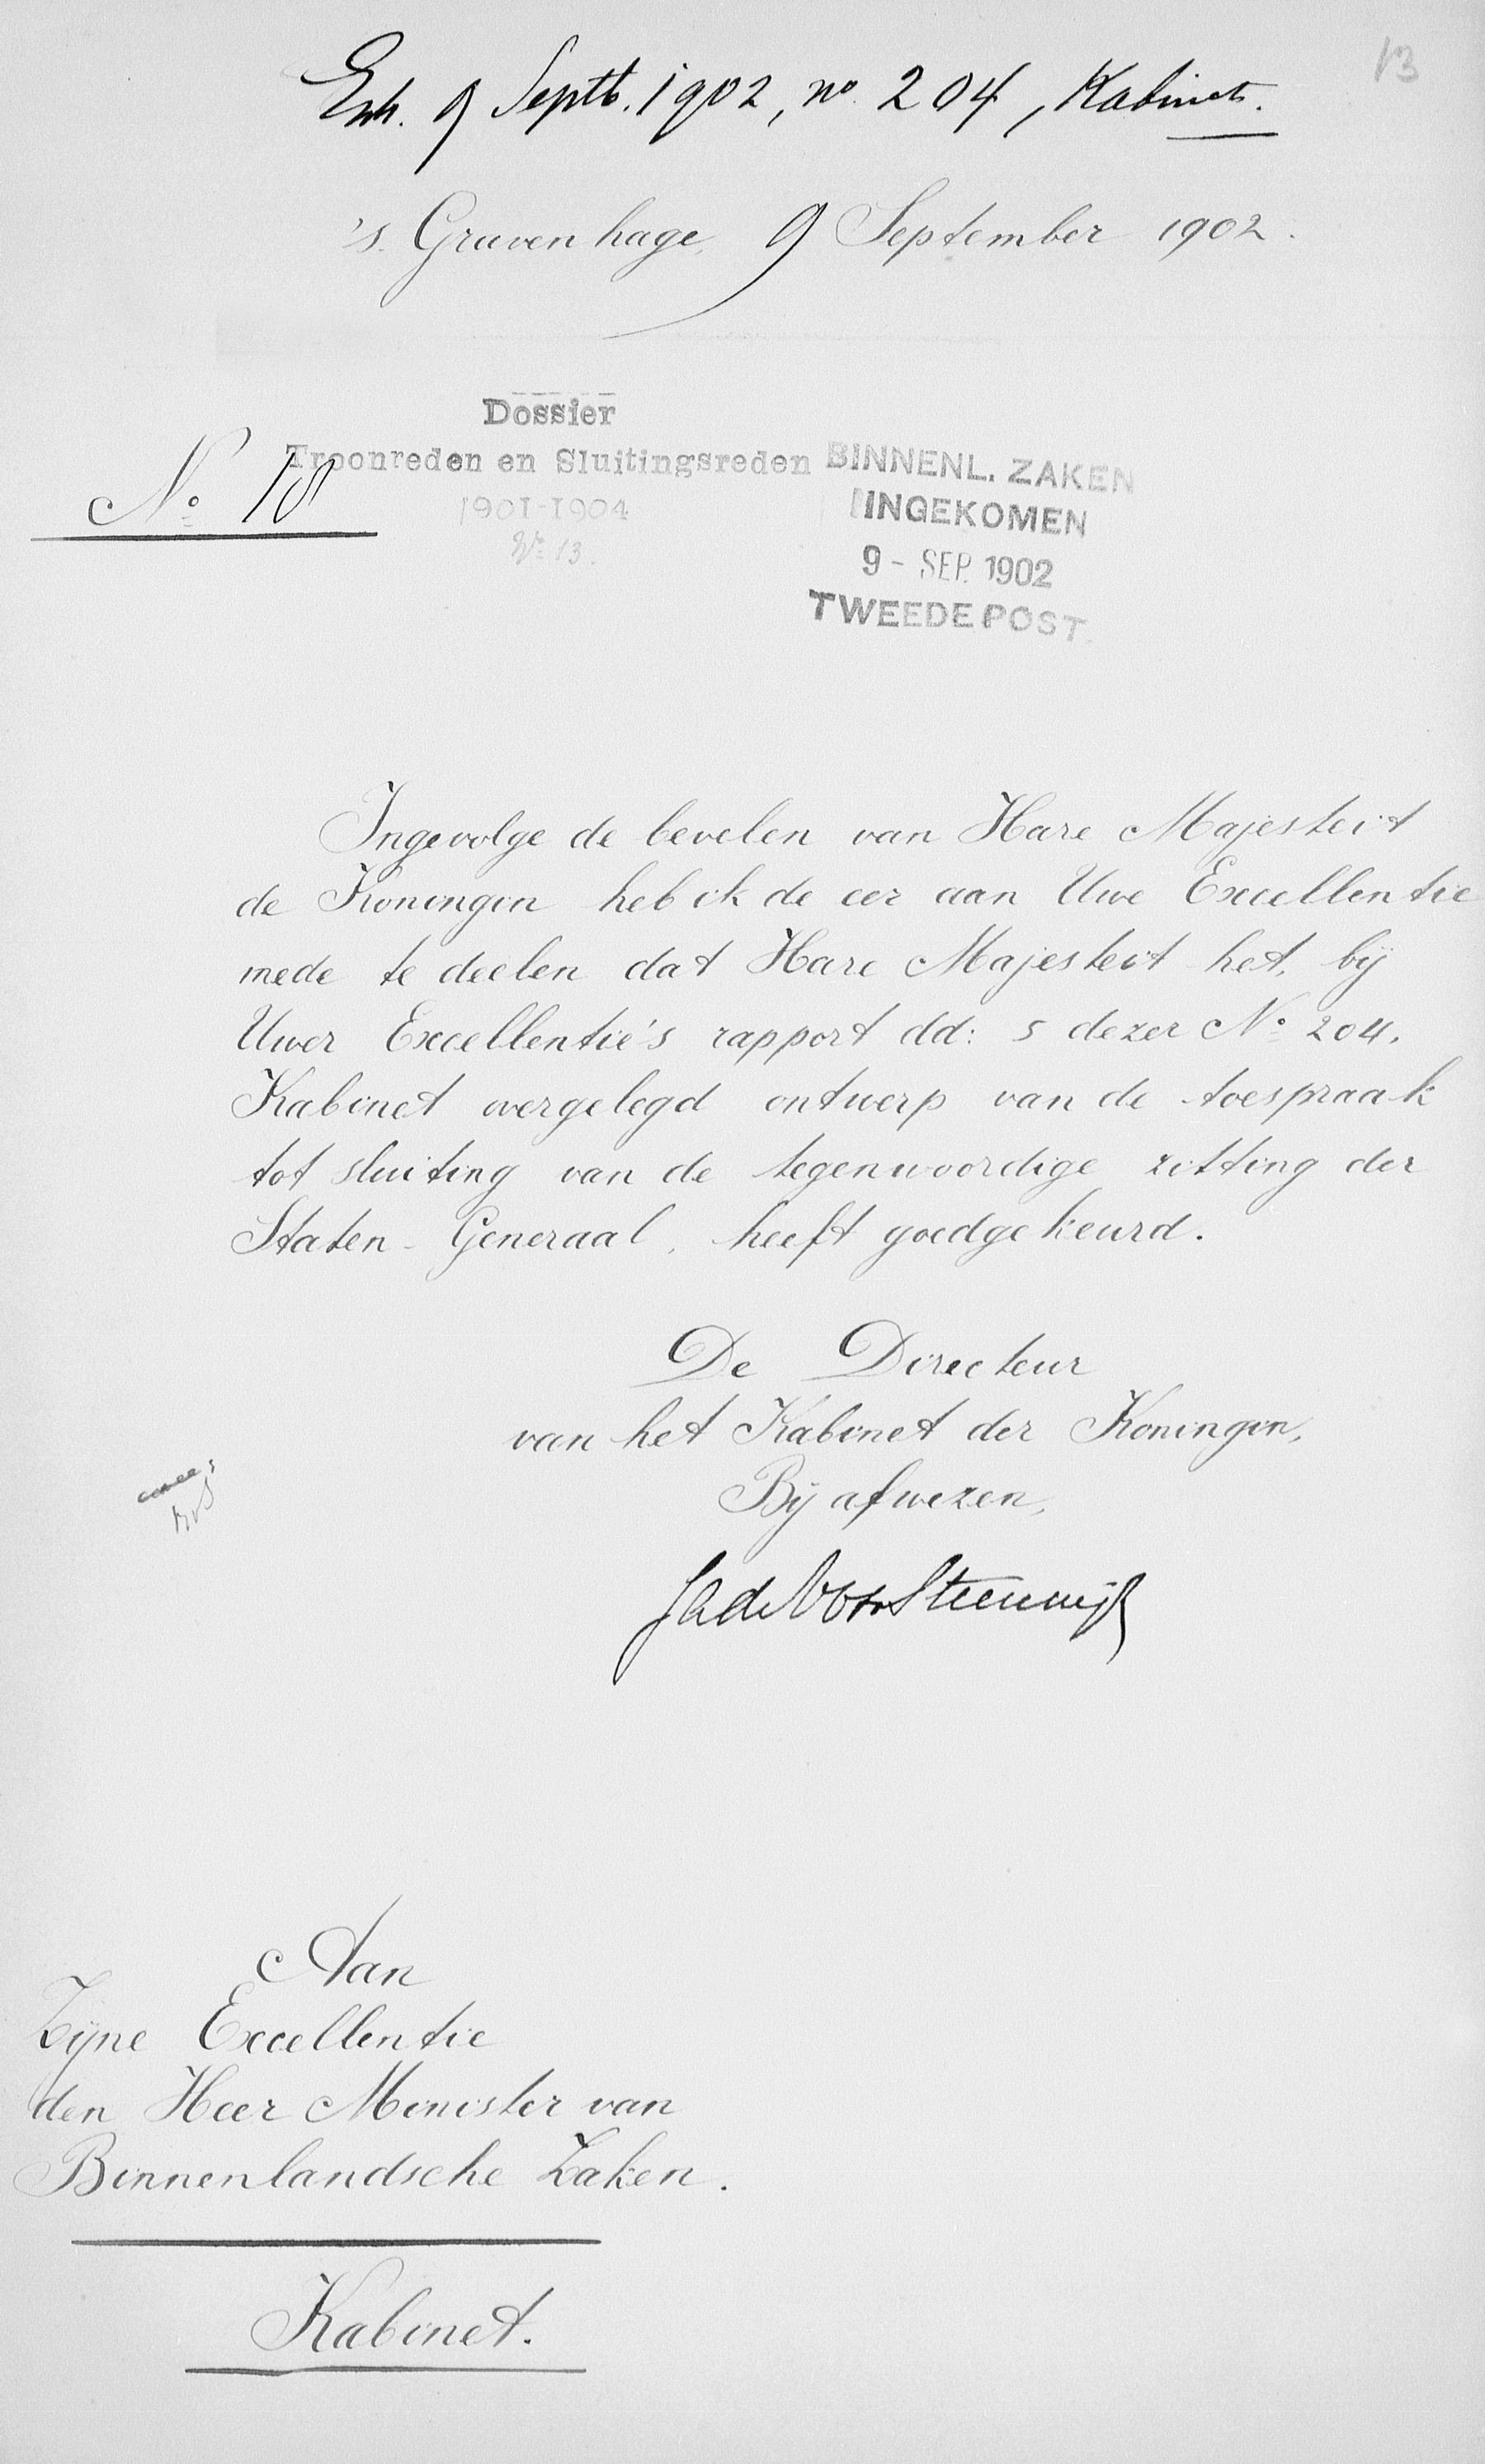 13
Exh. 9 Septb. 1902, no. 204, Kabinet.
's Gravenhage, 9 September 1902.
Dossier
Troonreden en Sluitingsreden
1901-1904
No 13.
No 18
BINNENL. ZAKEN
INGEKOMEN
9 - SEP. 1902
TWEEDE POST.
Ingevolge de bevelen van Hare Majesteit
de Koningin heb ik de eer aan Uwe Excellentie
mede te deelen dat Hare Majesteit het, bij
Uwer Excellentie's rapport dd: 5 dezer No 204,
Kabinet overgelegd ontwerp van de toespraak
tot sluiting van de tegenwoordige zitting der
Staten-Generaal, heeft goedgekeurd.
De Directeur
van het Kabinet der Koningin,
Bij afwezen,
de Vos v Steenwijk
Aan
Zijne Excellentie
den Heer Minister van
Binnenlandsche Zaken.
Kabinet.